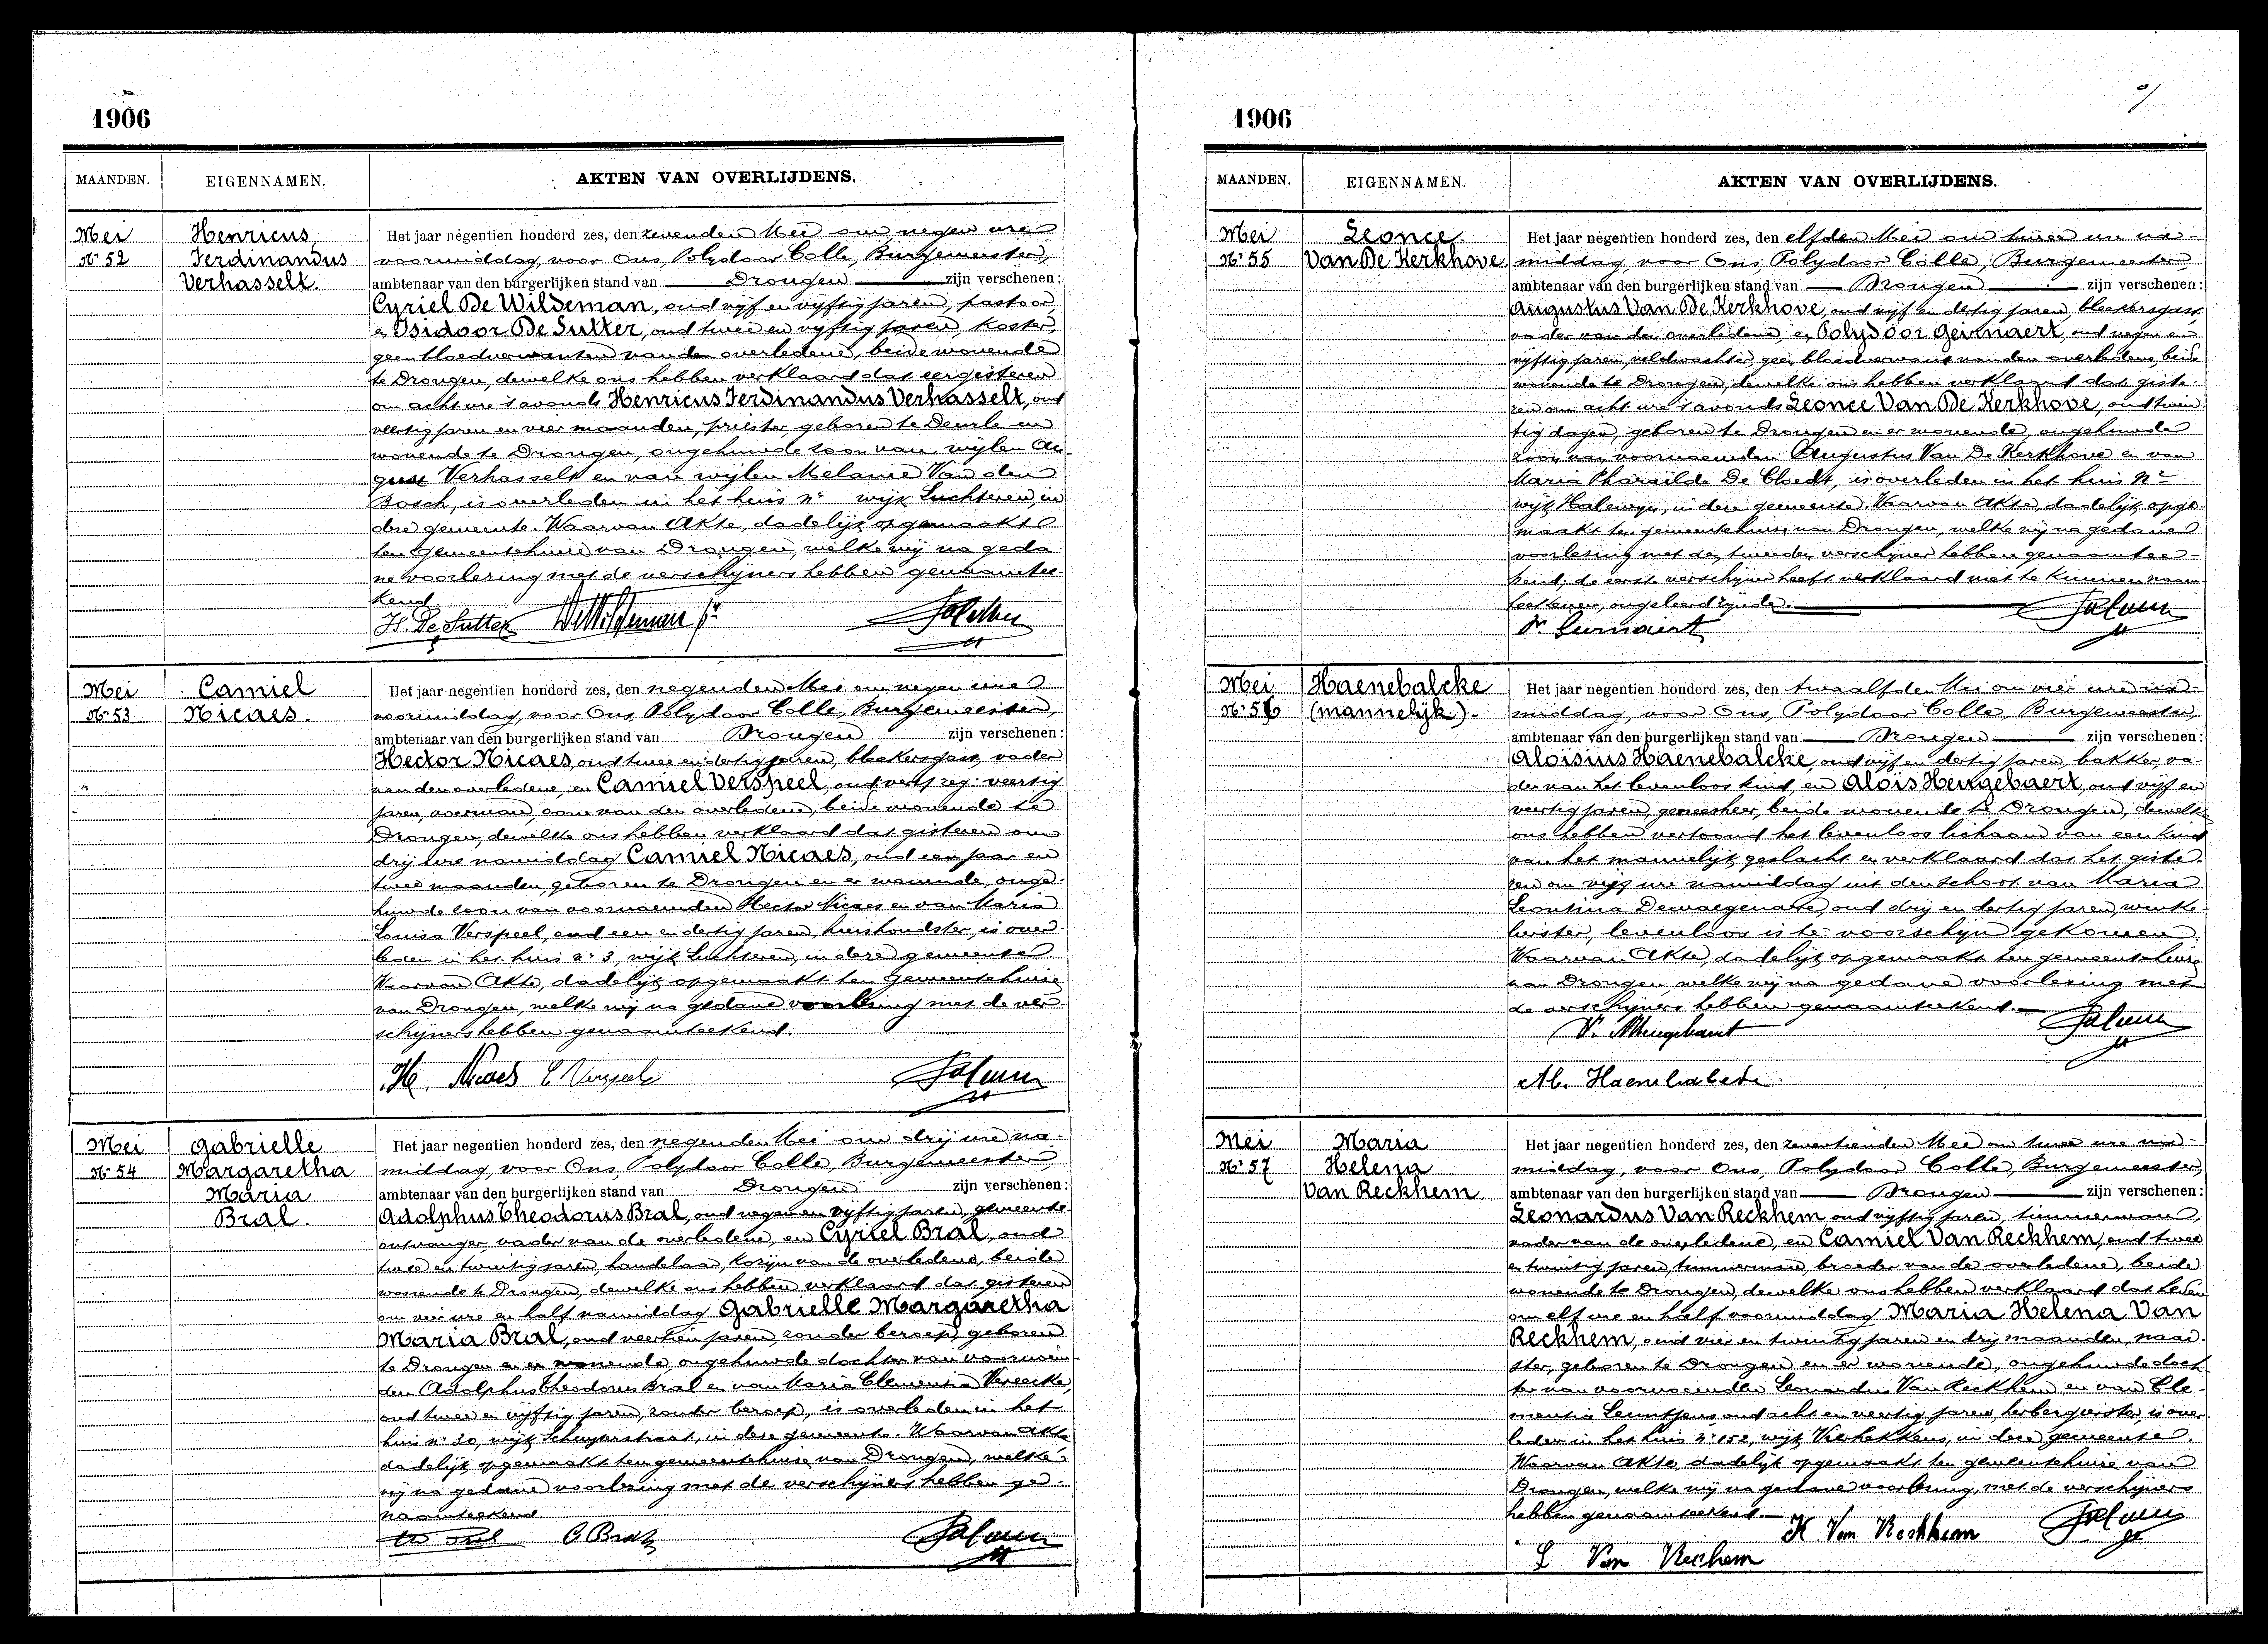 1906
MAANDEN. EIGENNAMEN. AKTEN VAN OVERLIJDENS.
Mei
Nr 52
Henricus
Ferdinandus
Verhasselt.
Het jaar negentien honderd zes, den zevenden Mei om negen ure
voormiddag, voor Ons, Polydoor Colle, Burgemeester,
ambtenaar van den burgerlijken stand van Drongen zijn verschenen:
Cyriel De Wildeman, oud vijf en vijftig jaren, pastoor,
en Isidoor De Sutter, oud twee en vijftig jaren, koster,
geen bloedverwanten van den overledene, beide wonende
te Drongen, dewelke ons hebben verklaard dat eergisteren
om acht ure 's avonds Henricus Ferdinandus Verhasselt, oud
veertig jaren en vier maanden, priester, geboren te Deurle en
wonende te Drongen, ongehuwde zoon van wijlen Au-
gust Verhasselt en van wijlen Melanie Van den
Bosch, is overleden in het huis nr wijk Luchteren, in
deze gemeente. Waarvan Akte, dadelijk opgemaakt
ten Gemeentehuize van Drongen, welke wij na geda
ne voorlezing met de verschijners hebben genaamtee-
kend.
Is. De Sutter De Wildeman pr
Mei
Nr 53
Camiel
Nicaes.
Het jaar negentien honderd zes, den negenden Mei om negen ure
voormiddag, voor Ons, Polydoor Colle, Burgemeester,
ambtenaar van den burgerlijken stand van Drongen zijn verschenen:
Hector Nicaes, oud twee en dertig jaren, bleekersgast, vader
van den overledene, en Camiel Verspeel, oud veertig
jaren, voerman, oom van den overledene, beide wonende te
Drongen, dewelke ons hebben verklaard dat gisteren om
drij ure namiddag Camiel Nicaes, oud een jaar en
twee maanden, geboren te Drongen en er wonende, onge-
huwde zoon van voornoemden Hector Nicaes en van Maria
Louisa Verspeel, oud een en dertig jaren, huishoudster, is over-
leden in het huis nr 3, wijk Luchteren, in deze gemeente.
Waarvan Akte, dadelijk opgemaakt ten Gemeentehuize
van Drongen, welke wij na gedane voorlezing met de ver
schijners hebben genaamteekend.
H. Nicaes C Verspeel
Mei
Nr 54
Gabrielle
Margaretha
Maria
Bral.
Het jaar negentien honderd zes, den negenden Mei om drij ure na-
middag, voor Ons, Polydoor Colle, Burgemeester,
ambtenaar van den burgerlijken stand van Drongen zijn verschenen:
Adolphus Theodorus Bral, oud negen en vijftig jaren, gemeente-
ontvanger, vader van de overledene, en Cyriel Bral, oud
twee en twintig jaren, handelaar, kozijn van de overledene, beide
wonende te Drongen, dewelke ons hebben verklaard dat gisteren
om vier ure en half namiddag Gabrielle Margaretha
Maria Bral, oud veertien jaren, zonder beroep, geboren
te Drongen en er wonende, ongehuwde dochter van voornoem-
den Adolphus Theodorus Bral en van Maria Clementia Vereecke,
oud twee en vijftig jaren, zonder beroep, is overleden in het
huis nr 30, wijk Schuyterstraat, in deze gemeente. Waarvan Akte
dadelijk opgemaakt ten gemeentehuize van Drongen, welke
wij na gedane voorlezing met de verschijners hebben ge-
naamteekend
C Bral
1906
MAANDEN. EIGENNAMEN. AKTEN VAN OVERLIJDENS.
Mei
Nr 55
Leonce
Van De Kerkhove
Het jaar negentien honderd zes, den elfden Mei om twee ure na-
middag, voor Ons, Polydoor Colle, Burgemeester,
ambtenaar van den burgerlijken stand van Drongen zijn verschenen:
Augustus Van De Kerkhove, oud vijf en dertig jaren, bleekersgast,
vader van den overledene, en Polydoor Geirnaert, oud negen en
vijftig jaren, veldwachter, geen bloedverwant van den overledene, beide
wonende te Drongen, dewelke ons hebben verklaard dat giste-
ren om acht ure 's avonds Leonce Van De Kerkhove, oud twin
tig dagen, geboren te Drongen en er wonende, ongehuwde
zoon van voornoemden Augustus Van De Kerkhove en van
Maria Pharaïlde De Cloedt, is overleden in het huis nr
wijk Halewyn, in deze gemeente. Waarvan Akte, dadelijk opge-
maakt ten gemeentehuize van Drongen, welke wij na gedane
voorlezing met den tweeden verschijner hebben genaamtee-
kend; de eerste verschijner heeft verklaard niet te kunnen naam
teekenen, ongeleerd zijnde.
P. Geirnaert
Mei
Nr 56
Haenebalcke
(mannelijk).
Het jaar negentien honderd zes, den twaalfden Mei om vier ure na-
middag, voor Ons, Polydoor Colle, Burgemeester,
ambtenaar van den burgerlijken stand van Drongen zijn verschenen:
Aloisius Haenebalcke, oud vijf en dertig jaren, bakker, va-
der van het levenloos kind, en Alois Hengebaert, oud vijf en
veertig jaren, geneesheer, beide wonende te Drongen, dewelke
ons hebben vertoond het levenloos lichaam van een kind
van het mannelijk geslacht en verklaard dat het giste-
ren om vijf ure namiddag uit den schoot van Maria
Leontina Dewaegenaere, oud drij en dertig jaren, winke-
lierster, levenloos is te voorschijn gekomen.
Waarvan Akte, dadelijk opgemaakt ten gemeentehuize
van Drongen, welke wij na gedane voorlezing met
de verschijners hebben genaamteekend.
Al. Haenebalcke
Mei
Nr 57
Maria
Helena
Van Reckhem
Het jaar negentien honderd zes, den zeventienden Mei om twee ure na-
middag, voor Ons, Polydoor Colle, Burgemeester,
ambtenaar van den burgerlijken stand van Drongen zijn verschenen:
Leonardus Van Reckhem, oud vijftig jaren, timmerman,
vader van de overledene, en Camiel Van Reckhem, oud twee
en twintig jaren, timmerman, broeder van de overledene, beide
wonende te Drongen, dewelke ons hebben verklaard dat heden
om elf ure en half voormiddag Maria Helena Van
Reckhem, oud vier en twintig jaren en drij maanden, naai-
ster, geboren te Drongen en er wonende, ongehuwde doch
ter van voornoemden Leonardus Van Reckhem en van Cle-
mentia oud acht en veertig jaren, herbergierster, is over-
leden in het huis nr 152, wijk Vierhekkens, in deze gemeente.
Waarvan Akte, dadelijk opgemaakt ten gemeentehuize van
Drongen, welke wij na gedane voorlezing, met de verschijners
hebben genaamteekend.
K Van Reckhem
L Van Reckhem